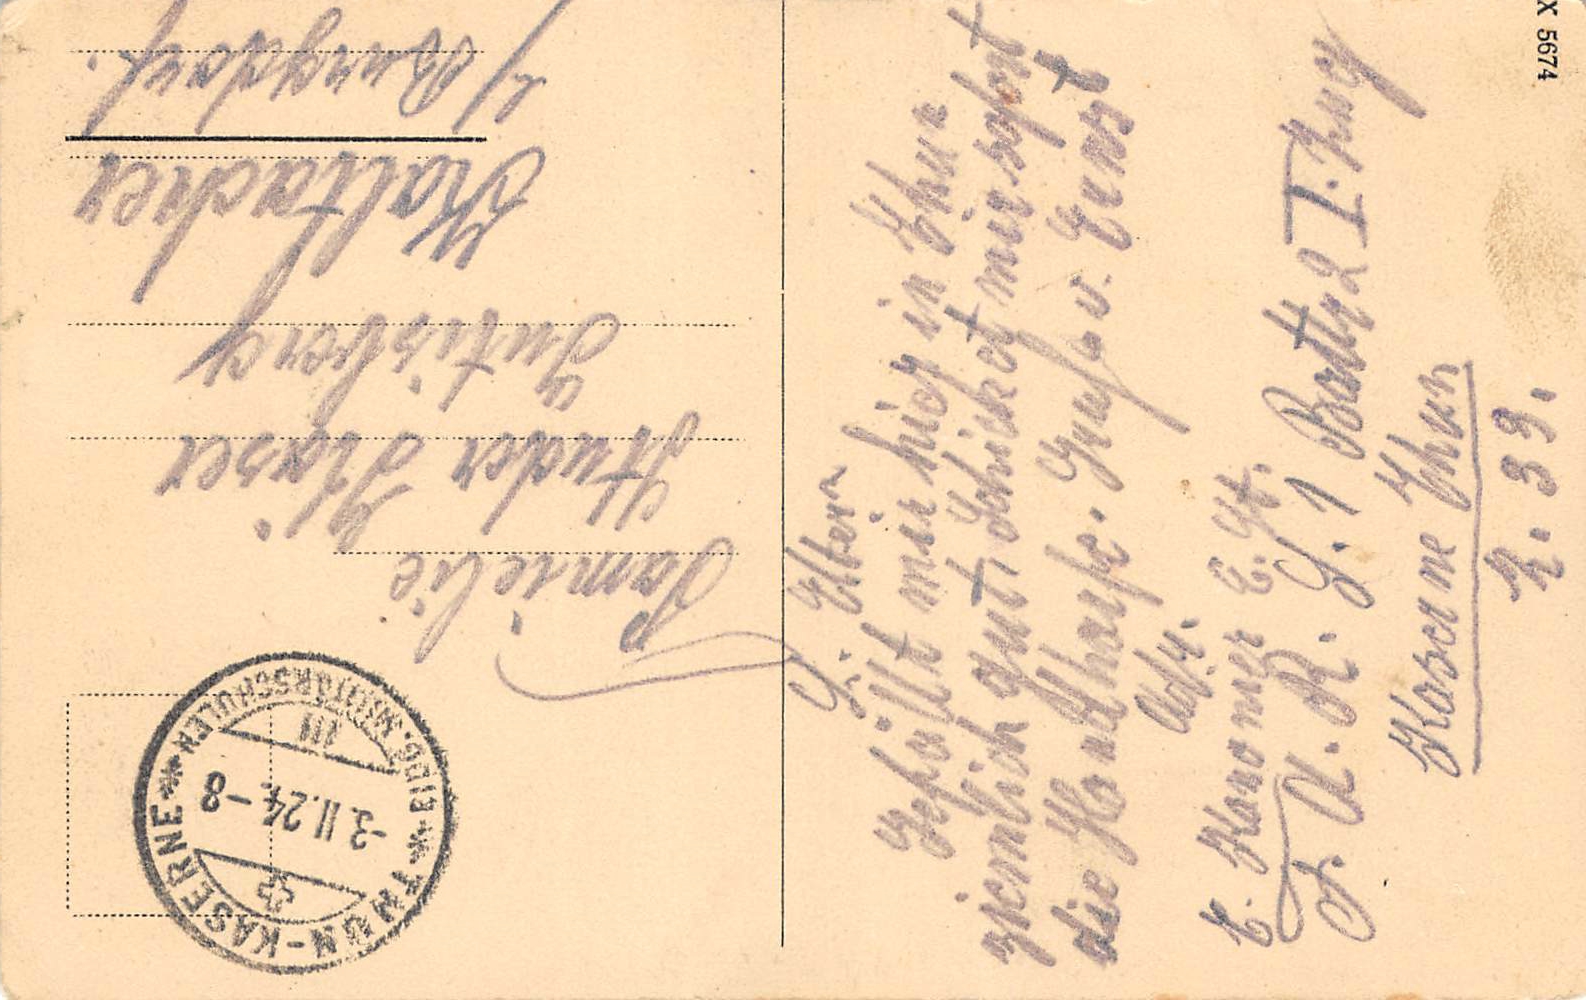 L. Eltern
Gefällt mir hier in Thun
ziemlich gut, schicket mir sofort
die Handharfe. Gruss v. Ernst
Abs.
E. Kanonier E. St.
F. A. R. S. 1 Battr. 2 I. Zug
Kaserne Thun
Z. 39.
Familie
Studer
Gutisberg
Kaltacher
b/ Burgdorf.
THUN-KASERNE
EIDG. MILITÄRSCHULEN
-3.II.24.-8
X 5674